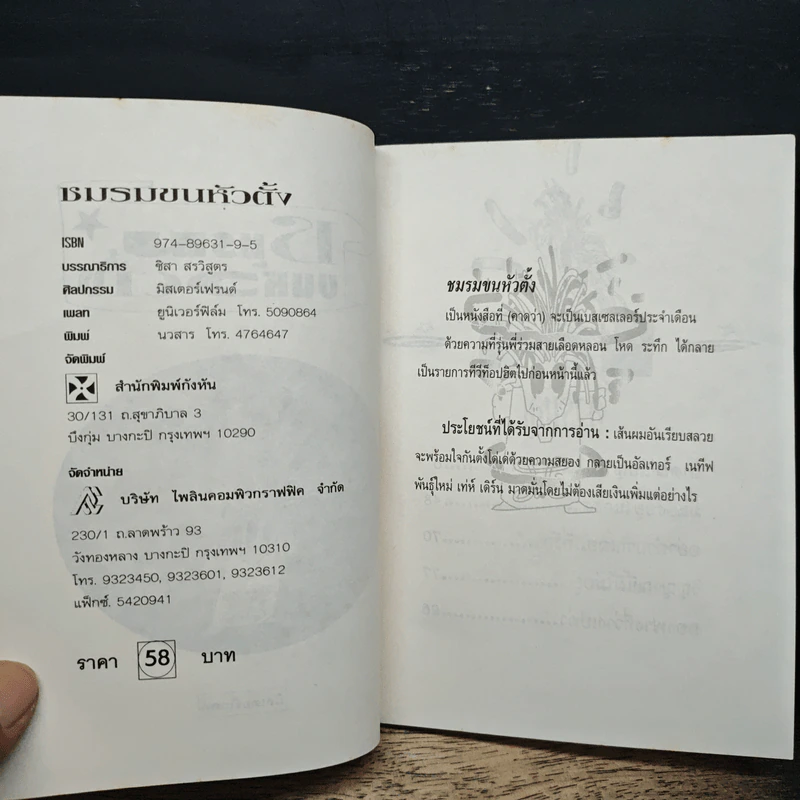 ชมรมขนหัวตั้ง
ISBN 974-89631-9-5
บรรณาธิการ ชิสา สรวิสูตร
ศิลปกรรม มิสเตอร์เฟรนต์
เพลท ยูนิเวอร์ฟิล์ม โทร. 5090864
พิมพ์ นวสาร โทร. 4764647
จัดพิมพ์
สำนักพิมพ์กังหัน
30/131 ถ.สุขาภิบาล 3
บึงกุ่ม บางกะปิ กรุงเทพฯ 10290
จัดจำหน่าย
บริษัท ไพลินคอมพิวกราฟฟิค จำกัด
230/1 ถ.ลาดพร้าว 93
วังทองหลาง บางกะปิ กรุงเทพฯ 10310
โทร. 9323450, 9323601, 9323612
แฟ็กซ์. 5420941
ราคา 58 บาท
ชมรมขนหัวตั้ง
เป็นหนังสือที่ (คาดว่า) จะเป็นเบสเซลเลอร์ประจำเดือน
ด้วยความที่รุ่นพี่ร่วมสายเลือดหลอน โหด ระทึก ได้กลาย
เป็นรายการทีวีท็อปฮิตไปก่อนหน้านี้แล้ว
ประโยชน์ที่ได้รับจากการอ่าน : เส้นผมอันเรียบสลวย
จะพร้อมใจกันตั้งโด่เด่ด้วยความสยอง กลายเป็นอัลเทอร์ เนทีฟ
พันธุ์ใหม่ เท่ห์ เดิร์น มาดมั่นโดยไม่ต้องเสียเงินเพิ่มแต่อย่างไร